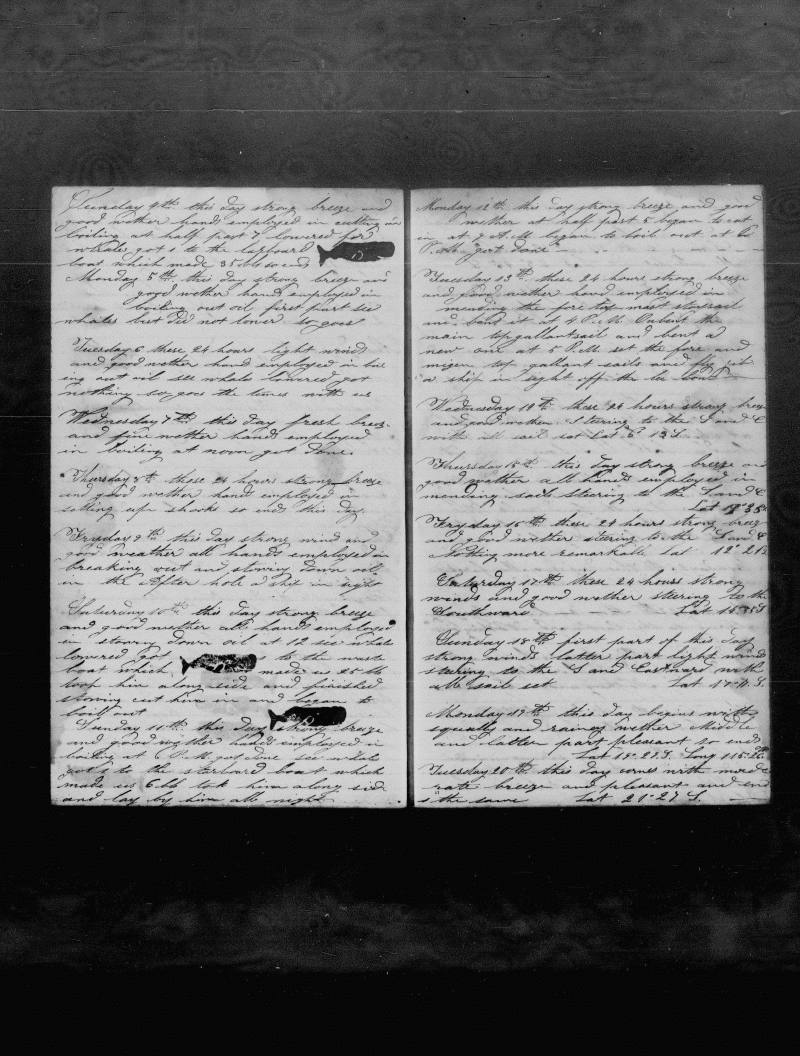 Sunday 4th this day strong breeze and
good wether hands employed in cutting in
boiling at half past 7 lowered for
whales got 1 to the larboard
boat which made 35 bbls so ends
Monday 5th this day strong breeze and
good wether hands employed in
boiling out oil first part see
whales but did not lower so goes
Tuesday 6 these 24 hours light winds
and good wether hands employed in boil
ing out oil see whales lowered got
nothing so goes the times with us
Wednesday 7th this day fresh breeze
and fine wether hands employed
in boiling at noon got done
Thursday 8th these 24 hours strong breeze
and good wether hands employed in
setting up shooks so ends this day
Fryday 9th this day strong wind and
good weather all hands employed in
breaking out and stowing down oil
in the After hole a ship in sight
Saturday 10th this day strong breeze
and good wether all hands employed
in stowing down oil at 12 see whales
lowered got to the waste
boat which made us 25 bb
took him along side and finished
stowing cut him in and began to
boil out
Sunday 11th this day strong breeze
and good wether hands employed in
boiling at 6 P.M. got done see whales
got 1 to the starboard boat which
made us 6 bb took him along side
and lay by him all night
Monday 12th this day strong breeze and good
wether at half past 5 began to cut
in at 9 A.M. began to boil out at 6
P.M. got done
Tuesday 13th these 24 hours strong breeze
and good wether hands employed in
mending the fore top mast staysail
and bent it at 4 P.M. Unbent the
main topgallantsail and bent a
new one at 5 P.M. set the fore and
mizen top gallant sails and
a ship in sight off the lee bow
Wednesday 14th these 24 hours strong breeze
and good wether Stearing to the S and E
with all sail set Lat
Thursday 15th this day strong breeze and
good wether all hands employed in
mending sails steering to the S and E
Lat
Fryday 16th these 24 hours strong breez
and good wether steering to the S and E
Nothing more remarkable Lat 12° 21 S
Saturday 17th these 24 hours strong
winds and good wether steering to the
Southward Lat 15°35 S
Sunday 18th first part of this day
strong winds latter part light winds
steering to the S and Eastward with
all sail set Lat 17 11 S.
Monday 19th this day begins with
squally and rainy wether middle
and latter part pleasant so ends
Lat 19° 27 S. Long 115° 26
Tuesday 20th this day comes with mode
rate breeze and pleasant and end
s the same Lat 21° 27 S.